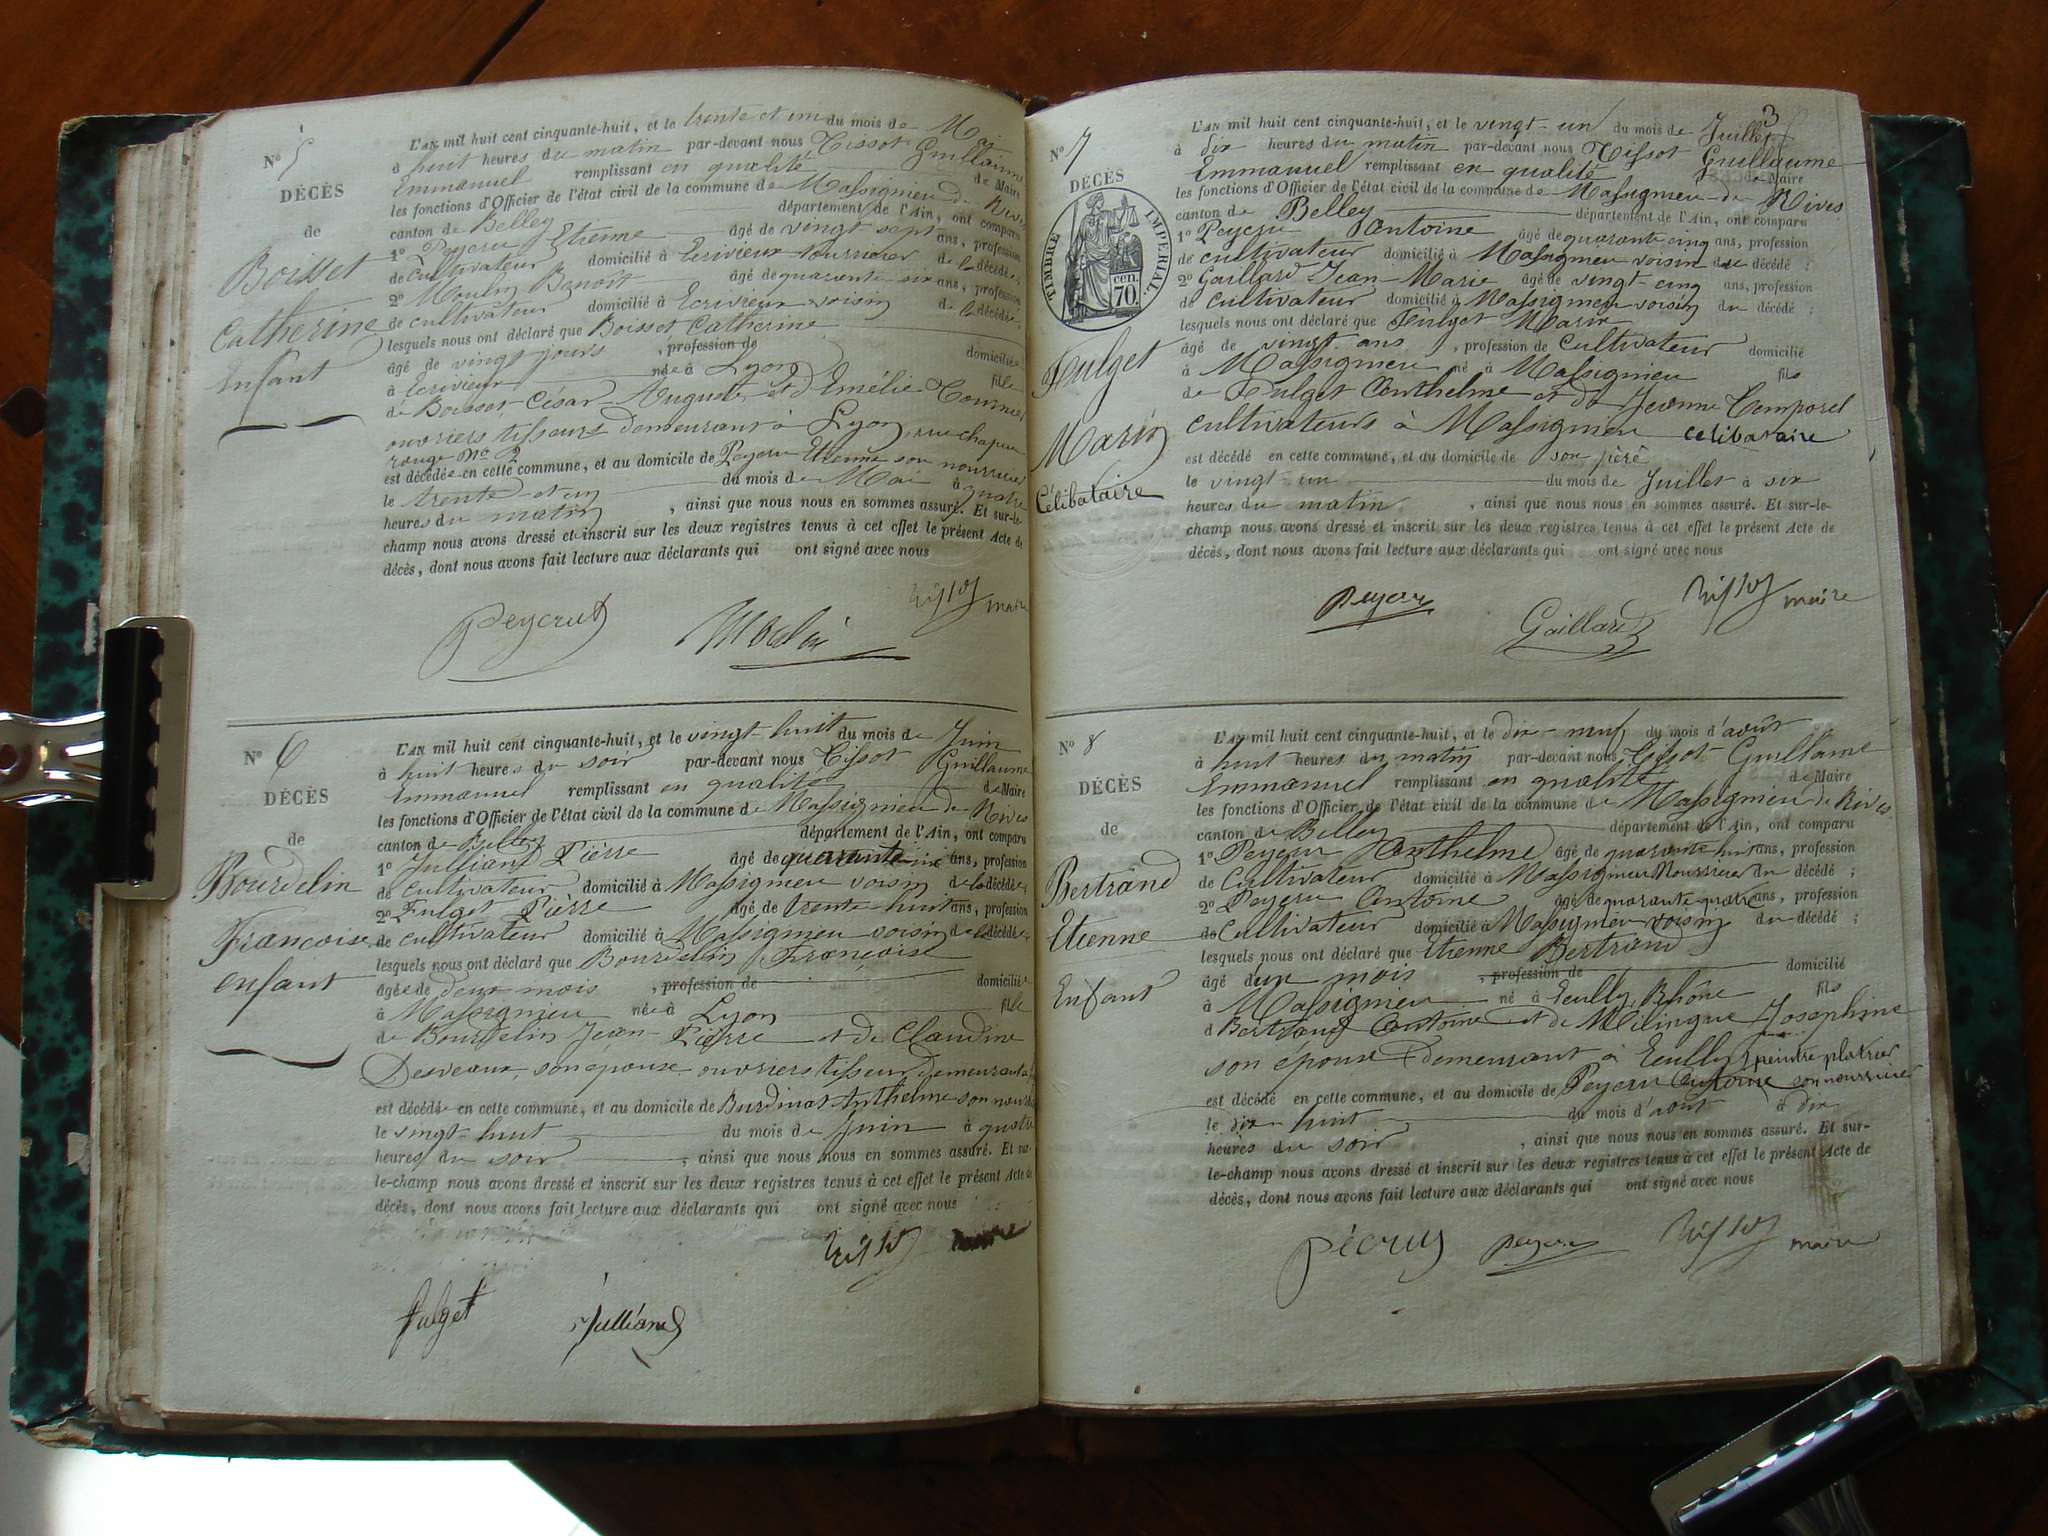 N° 5
DÉCÈS
de
Boisset
Catherine
Enfant
L'AN mil huit cent cinquante-huit, et le trente et un du mois de Mai
à huit heures du matin par-devant nous Tissot Guillaume
Emmanuel remplissant en qualité de Maire
les fonctions d'Officier de l'état civil de la commune de Massignieu de Rives
canton de Belley département de l'Ain, ont comparu
1° Peycru Etienne âgé de vingt sept ans, profession
de cultivateur domicilié à Ecrivieux nourricier de la décédée;
2° Moulin Benoît âgé de quarante six ans, profession
de cultivateur domicilié à Ecrivieux voisin de la décédée;
lesquels nous ont déclaré que Boisset Catherine
âgé de vingt jours, profession de domiciliée
à Ecrivieux née à Lyon fille
de Boisset César Auguste et d'Emélie Tournier
ouvriers tisseurs demeurant à Lyon rue chapeau
rouge N° 2
est décédée en cette commune, et au domicile de Peycru Etienne son nourricier
le trente et un du mois de Mai à quatre
heures du matin, ainsi que nous nous en sommes assuré. Et sur-le-
champ nous avons dressé et inscrit sur les deux registres tenus à cet effet le présent Acte de
décès, dont nous avons fait lecture aux déclarants qui ont signé avec nous
Peycrut Moulin Tissot maire
N° 6
DÉCÈS
de
Bourdelin
Françoise
enfant
L'AN mil huit cent cinquante-huit, et le vingt-huit du mois de Juin
à huit heures du soir par-devant nous Tissot Guillaume
Emmanuel remplissant en qualité de Maire
les fonctions d'Officier de l'état civil de la commune de Massignieu de Rives
canton de Belley département de l'Ain, ont comparu
1° Julliand Pierre âgé de quarante ans, profession
de cultivateur domicilié à Massignieu voisin de la décédée;
2° Fulget Pierre âgé de trente-huit ans, profession
de cultivateur domicilié à Massignieu voisin de la décédée;
lesquels nous ont déclaré que Bourdelin Françoise
âgée de deux mois, profession de domiciliée
à Massignieu née à Lyon fille
de Bourdelin Jean-Pierre et de Claudine
Desveaux, son épouse ouvriers tisseur demeurant à
est décédée en cette commune, et au domicile de Burdinat Anthelme son nourricier
le vingt-huit du mois de Juin à quatre
heures du soir, ainsi que nous nous en sommes assuré. Et sur-
le-champ nous avons dressé et inscrit sur les deux registres tenus à cet effet le présent Acte de
décès, dont nous avons fait lecture aux déclarants qui ont signé avec nous
Tissot maire
fulget Julliand
3
N° 7
DÉCÈS
TIMBRE IMPÉRIAL
70 cen.
Fulget
Marin
Célibataire
L'AN mil huit cent cinquante-huit, et le vingt-un du mois de Juillet
à dix heures du matin par-devant nous Tissot Guillaume
Emmanuel remplissant en qualité de Maire
les fonctions d'Officier de l'état civil de la commune de Massignieu-de Rives
canton de Belley département de l'Ain, ont comparu
1° Peycru Antoine âgé de quarante cinq ans, profession
de cultivateur domicilié à Massignieu voisin du décédé;
2° Gaillard Jean-Marie âgé de vingt-cinq ans, profession
de cultivateur domicilié à Massignieu voisin du décédé;
lesquels nous ont déclaré que Fulget Marin
âgé de vingt ans, profession de cultivateur domicilié
à Massignieu né à Massignieu fils
de Fulget Anthelme et de Jeanne Temporel
cultivateurs à Massignieu célibataire
est décédé en cette commune, et au domicile de son père
le vingt-un du mois de Juillet à six
heures du matin, ainsi que nous nous en sommes assuré. Et sur-le-
champ nous avons dressé et inscrit sur les deux registres tenus à cet effet le présent Acte de
décès, dont nous avons fait lecture aux déclarants qui ont signé avec nous
Peycru Gaillard Tissot maire
N° 8
DÉCÈS
de
Bertrand
Etienne
Enfant
L'AN mil huit cent cinquante-huit, et le dix-neuf du mois d'août
à huit heures du matin par-devant nous Tissot Guillame
Emmanuel remplissant en qualité de Maire
les fonctions d'Officier de l'état civil de la commune de Massignieu de Rives
canton de Belley département de l'Ain, ont comparu
1° Peycru Anthelme âgé de quarante huit ans, profession
de cultivateur domicilié à Massignieu Nourricier du décédé;
2° Peycru Antoine âgé de quarante quatre ans, profession
de cultivateur domicilié à Massignieu voisin du décédé;
lesquels nous ont déclaré que Etienne Bertrand
âgé d'un mois, profession de domicilié
à Massignieu né à Ecully Rhône fils
d Bertrand Antoine et de Milingue Josephine
son épouse demeurant à Ecully peintre platrier
est décédé en cette commune, et au domicile de Peycru Antoine son nourricier
le dix-huit du mois d'aout à dix
heures du soir, ainsi que nous nous en sommes assuré. Et sur-
le-champ nous avons dressé et inscrit sur les deux registres tenus à cet effet le présent Acte de
décès, dont nous avons fait lecture aux déclarants qui ont signé avec nous
Pécruy Peycru Tissot maire